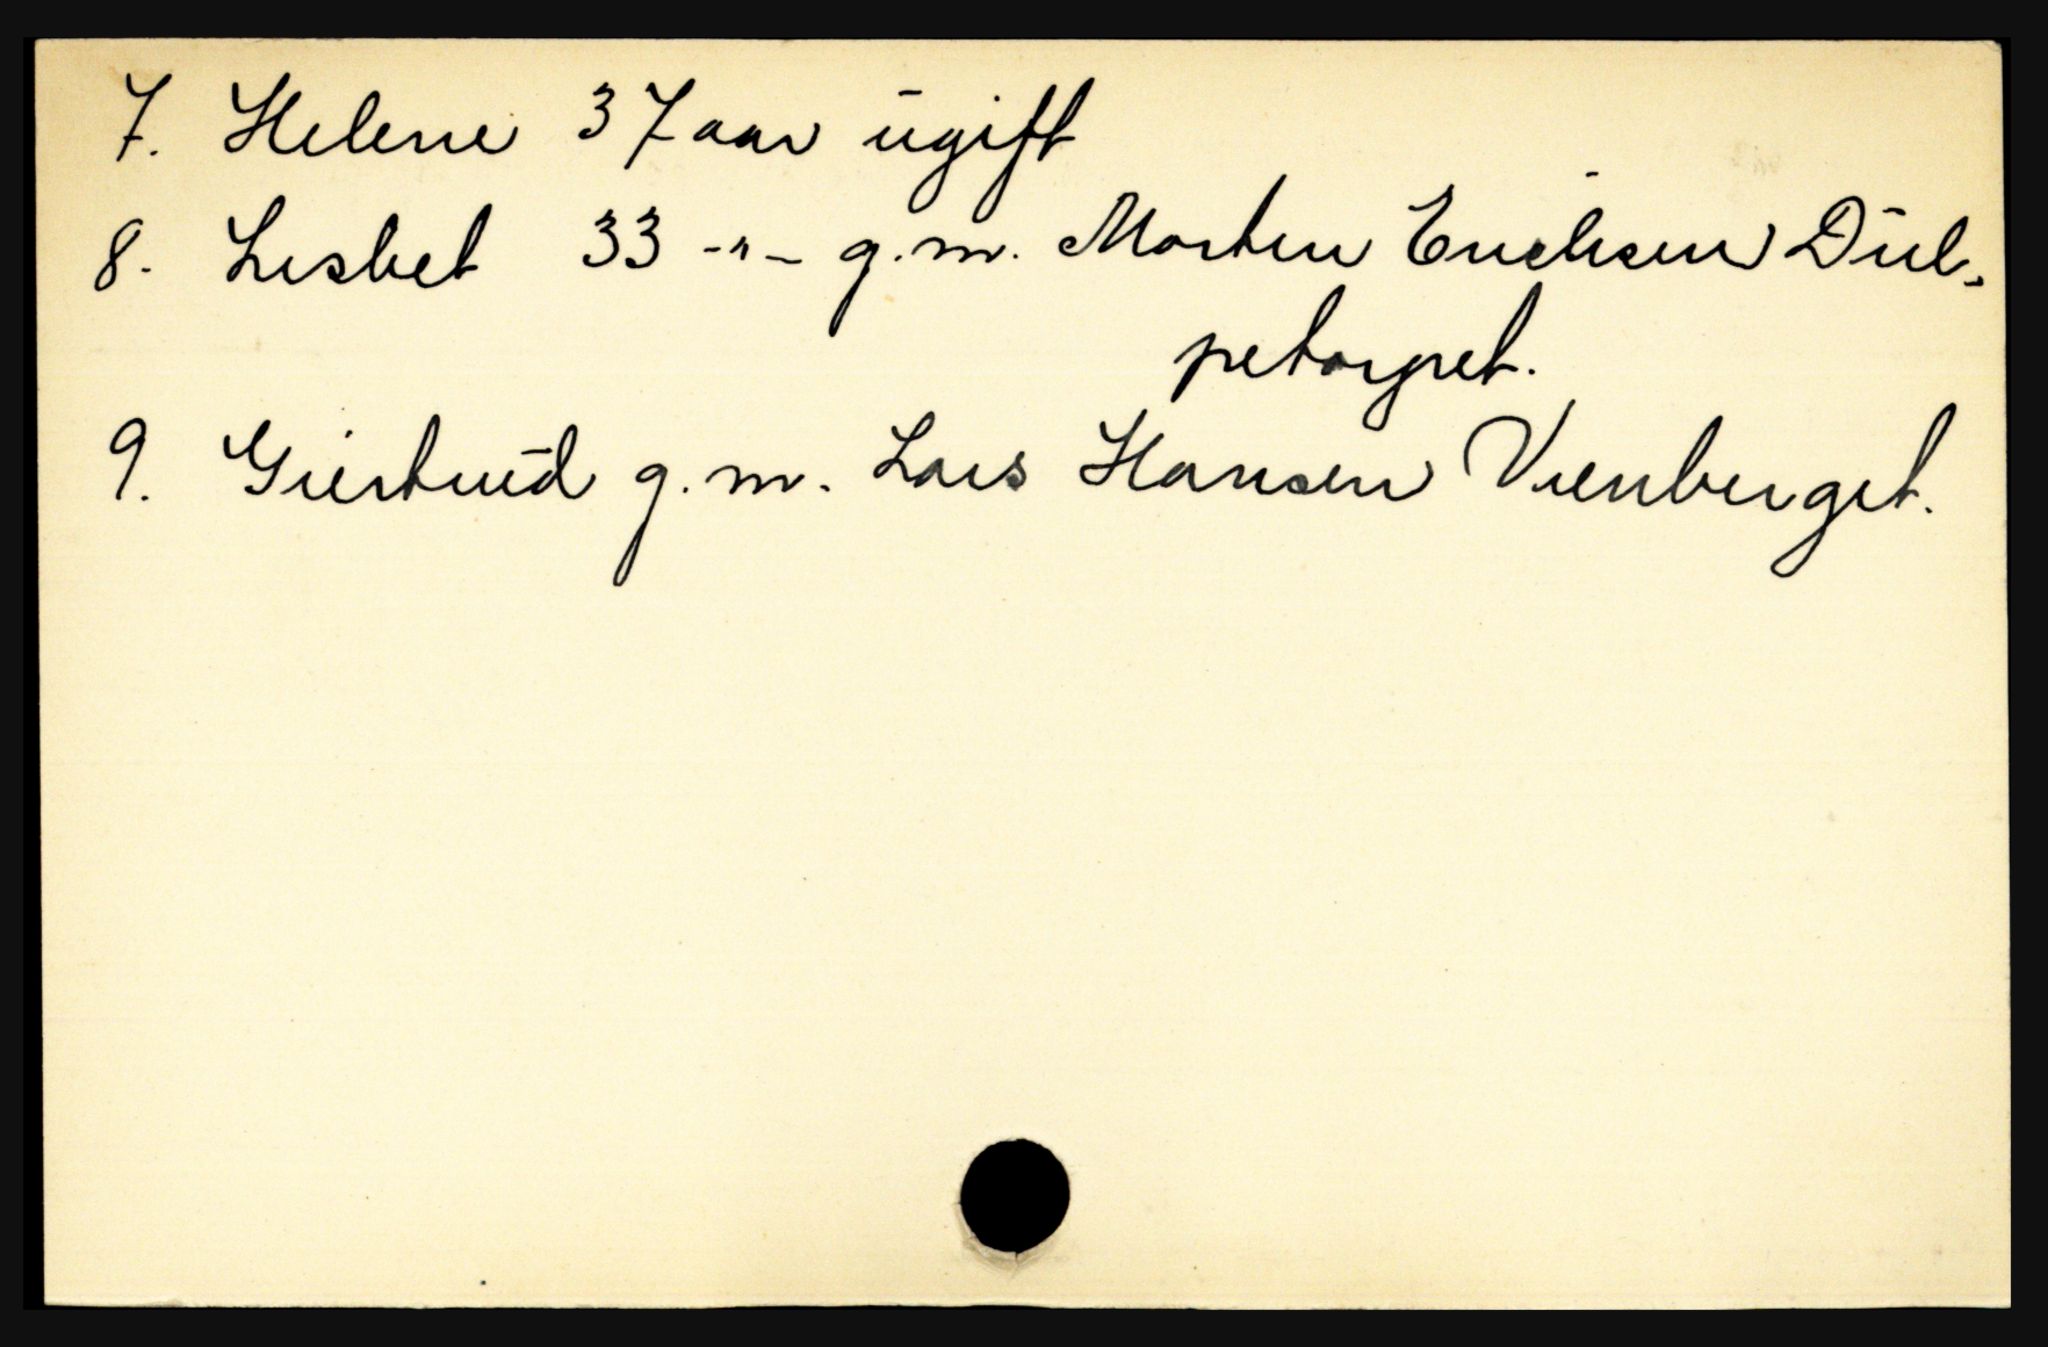 7. Helene 37 aar ugift
8. Lisbet 33 -"- g.m. Morten Erichsen Dul-
petorpet.
9. Giertrud g.m. Lars Hansen Vienberget.